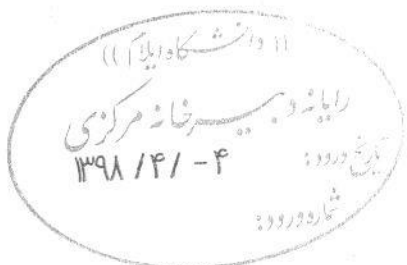 (( دانشگاه ایلام ))
رایانه و دبیرخانه مرکزی
تاریخ ورود: ۱۳۹۸/۴/-۴
شماره ورود: